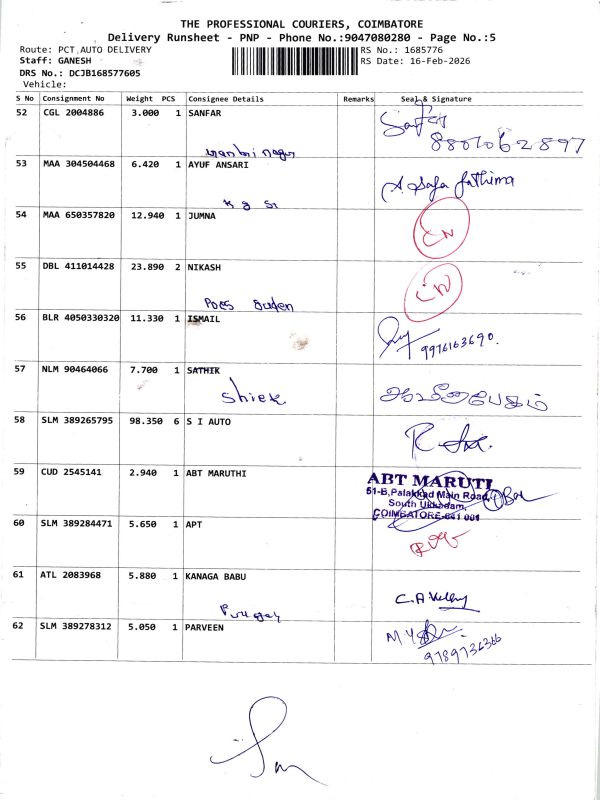 THE PROFESSIONAL COURIERS, COIMBATORE
Delivery Runsheet - PNP - Phone No.:9047080280 - Page No.:5
Route: PCT AUTO DELIVERY
RS No.: 1685776
Staff: GANESH
RS Date: 16-Feb-2026
DRS No.: DCJB168577605
Vehicle:
S No Consignment No Weight PCS Consignee Details Remarks Seal & Signature
52 CGL 2004886 3.000 1 SANFAR
8807062897
53 MAA 304504468 6.420 1 AYUF ANSARI
S. Safa fathima
54 MAA 650357820 12.940 1 JUMNA
CN
55 DBL 411014428 23.890 2 NIKASH
CN
56 BLR 4050330320 11.330 1 ISMAIL
9976163690.
57 NLM 90464066 7.700 1 SATHIK
Shiek
58 SLM 389265795 98.350 6 S I AUTO
59 CUD 2545141 2.940 1 ABT MARUTHI
ABT MARUTI
51-B,Palakkad Main Road,
South Ukkadam,
COIMBATORE-641 001
60 SLM 389284471 5.650 1 APT
61 ATL 2083968 5.880 1 KANAGA BABU
62 SLM 389278312 5.050 1 PARVEEN
9789736366